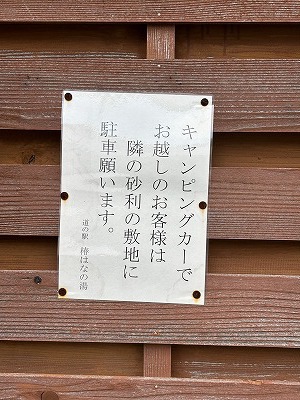 キャンピングカーで
お越しのお客様は
隣の砂利の敷地に
駐車願います。
道の駅 椿はなの湯